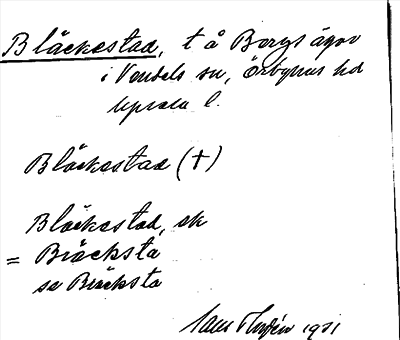 Bläckestad, t å Bergs ägor
i Vendels sn, Örbyhus hd
Uppsala l.
Bläckestad (†)
Bläckestad, sk
= Bräcksta
se Bräcksta
1931